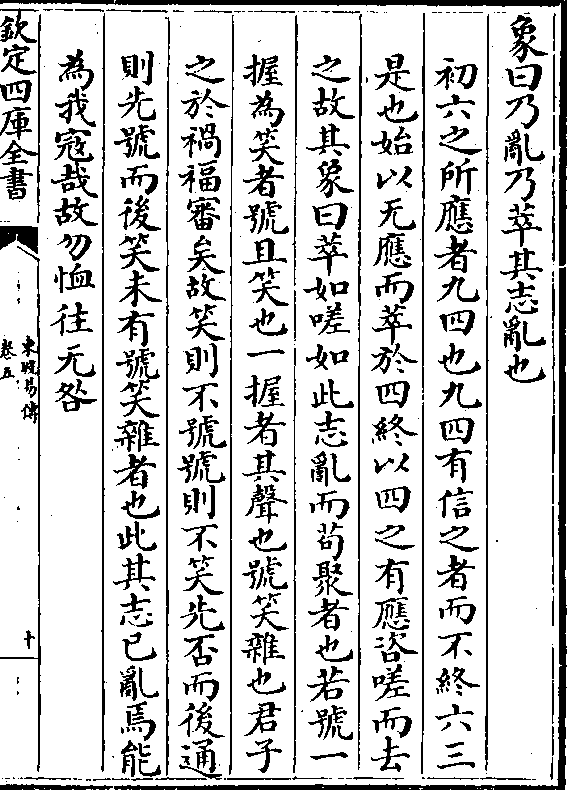 象曰乃亂乃萃其志亂也
初六之所應者九四也九四有信之者而不終六三
是也始以无應而萃於四終以四之有應咨嗟而去
之故其象曰萃如嗟如此志亂而苟聚者也若號一
握為笑者號且笑也一握者其聲也號笑雜也君子
之於禍福審矣故笑則不號號則不笑先否而後通
則先號而後笑未有號笑雜者也此其志已亂焉能
為我寇哉故勿恤往无咎
欽定四庫全書
東坡易傳
卷五
十